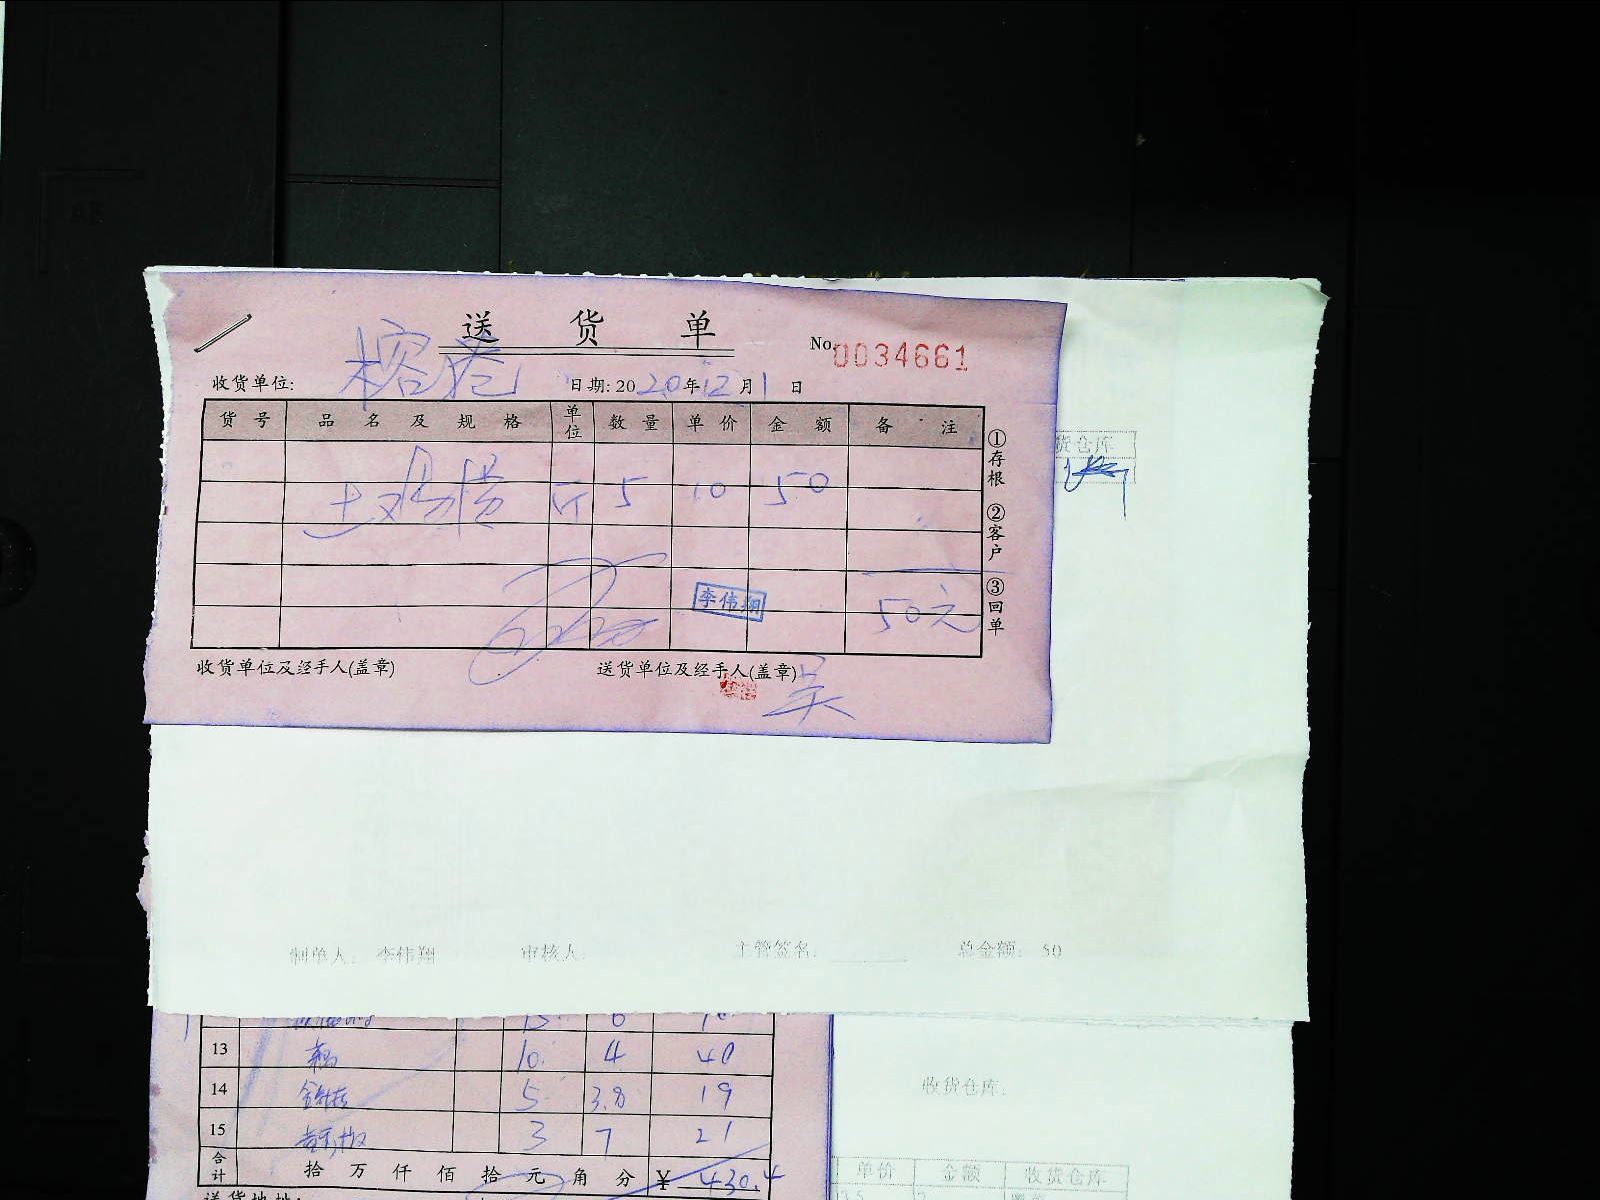 送货单
No. 0034661
收货单位: 榕港 日期: 2020年12月1日
货号 品名及规格 单位 数量 单价 金额 备注
土鸡 斤 5 10 50
李伟翔 50元
①存根 ②客户 ③回单
收货单位及经手人(盖章) 送货单位及经手人(盖章) 吴
货仓库
制单人: 李伟翔 审核人: 主管签名: 总金额: 50
13 10 4 40
14 金针菇 5 3.8 19
15 3 7 21
合计 拾万仟佰拾元角分 ¥430.4
送货地址:
收货仓库:
单价 金额 收货仓库
3.5